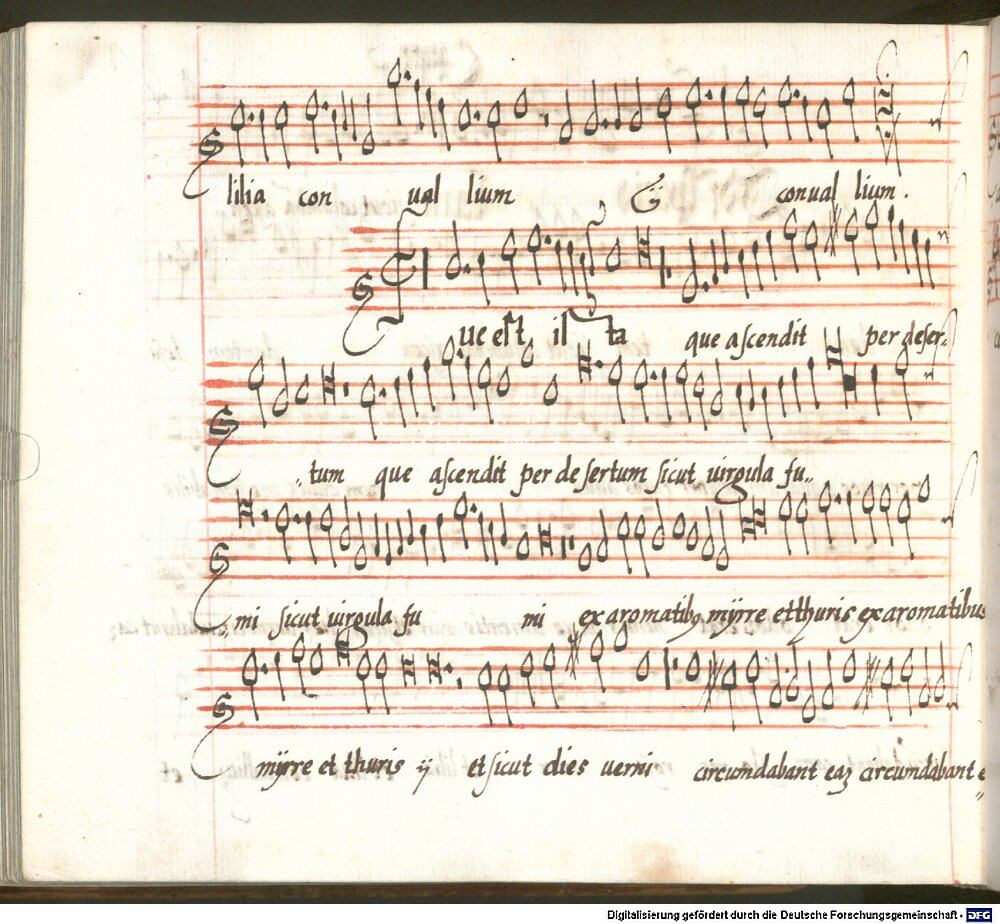 lilia con ual lium ij conual lium .
ue est is ta que ascendit per deser-
tum que ascendit per desertum sicut uirgula fu
mi sicut uirgula fu mi ex aromatibꝰ mÿrre et thuris ex aromatibus
mÿrre et thuris ij et sicut dies uerni circumdabant eaʒ circumdabant e
Digitalisierung gefördert durch die Deutsche Forschungsgemeinschaft - DFG